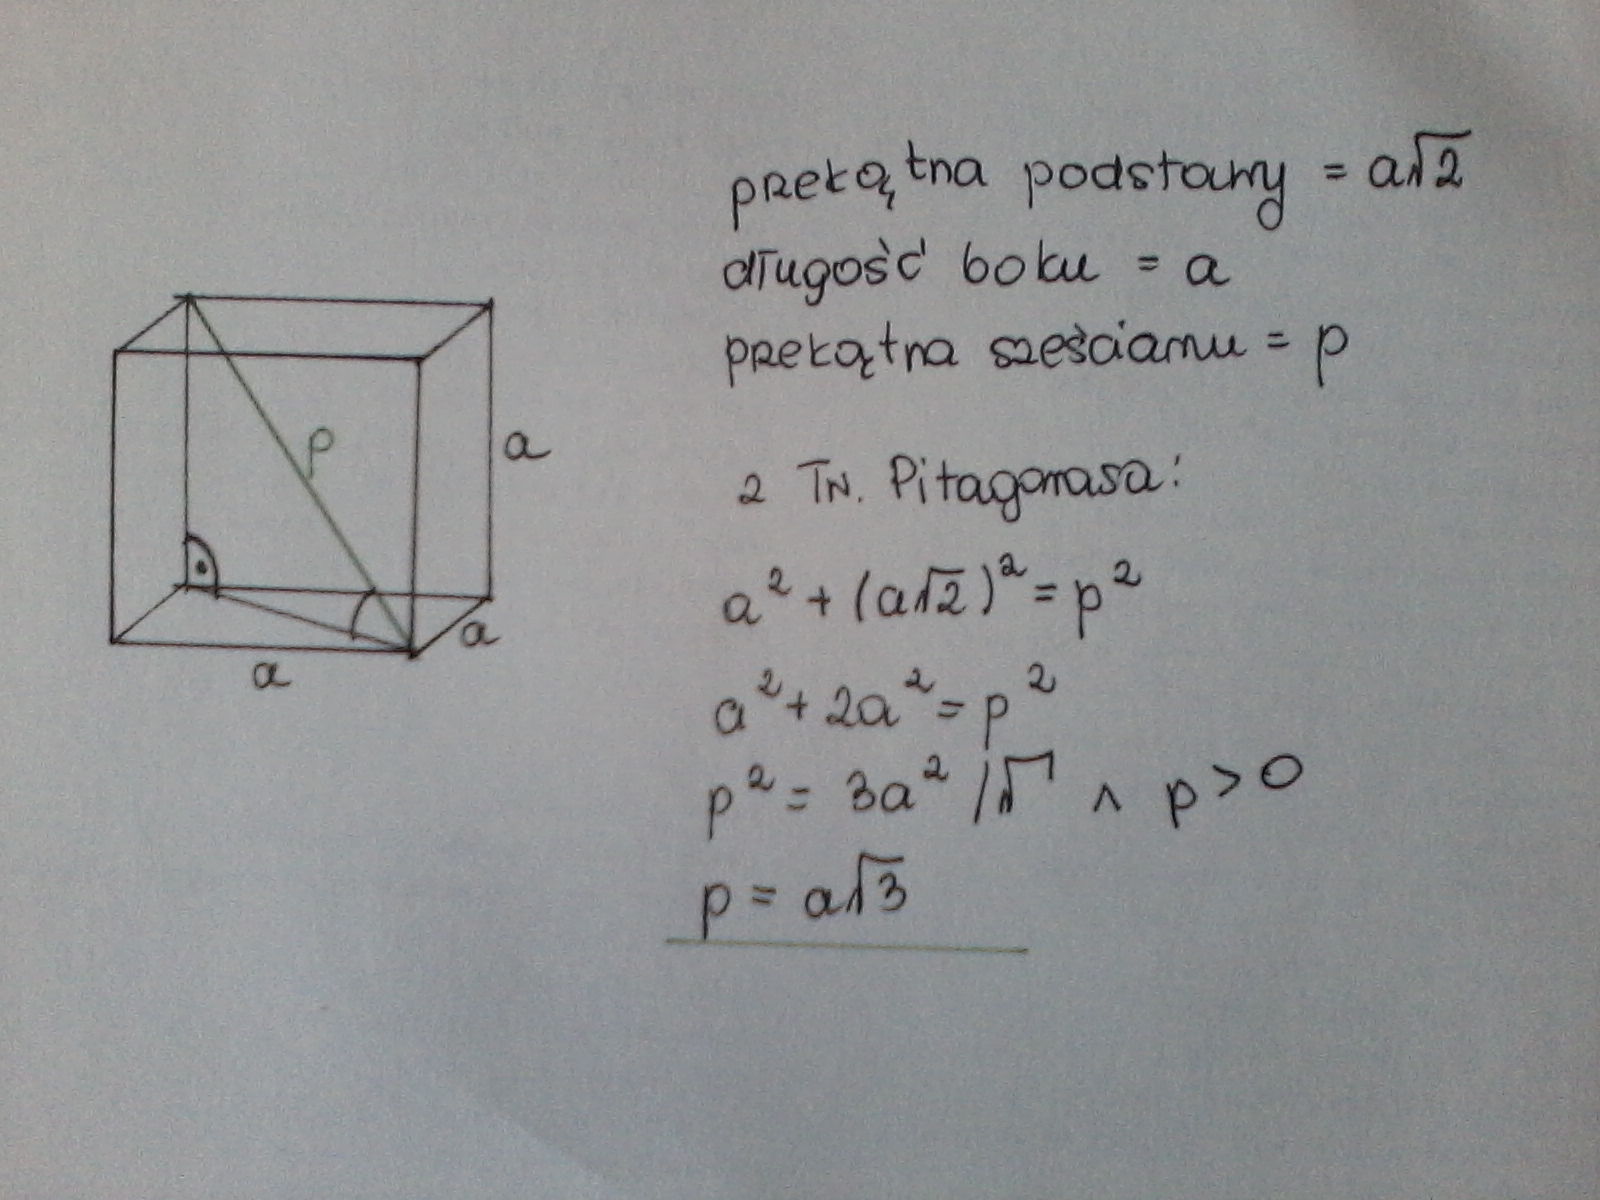 przekątna podstawy = a√2
długość boku = a
przekątna sześcianu = p
p
a
a
a
z Tw. Pitagorasa:
a² + (a√2)² = p²
a² + 2a² = p²
p² = 3a² /√ ∧ p > 0
p = a√3